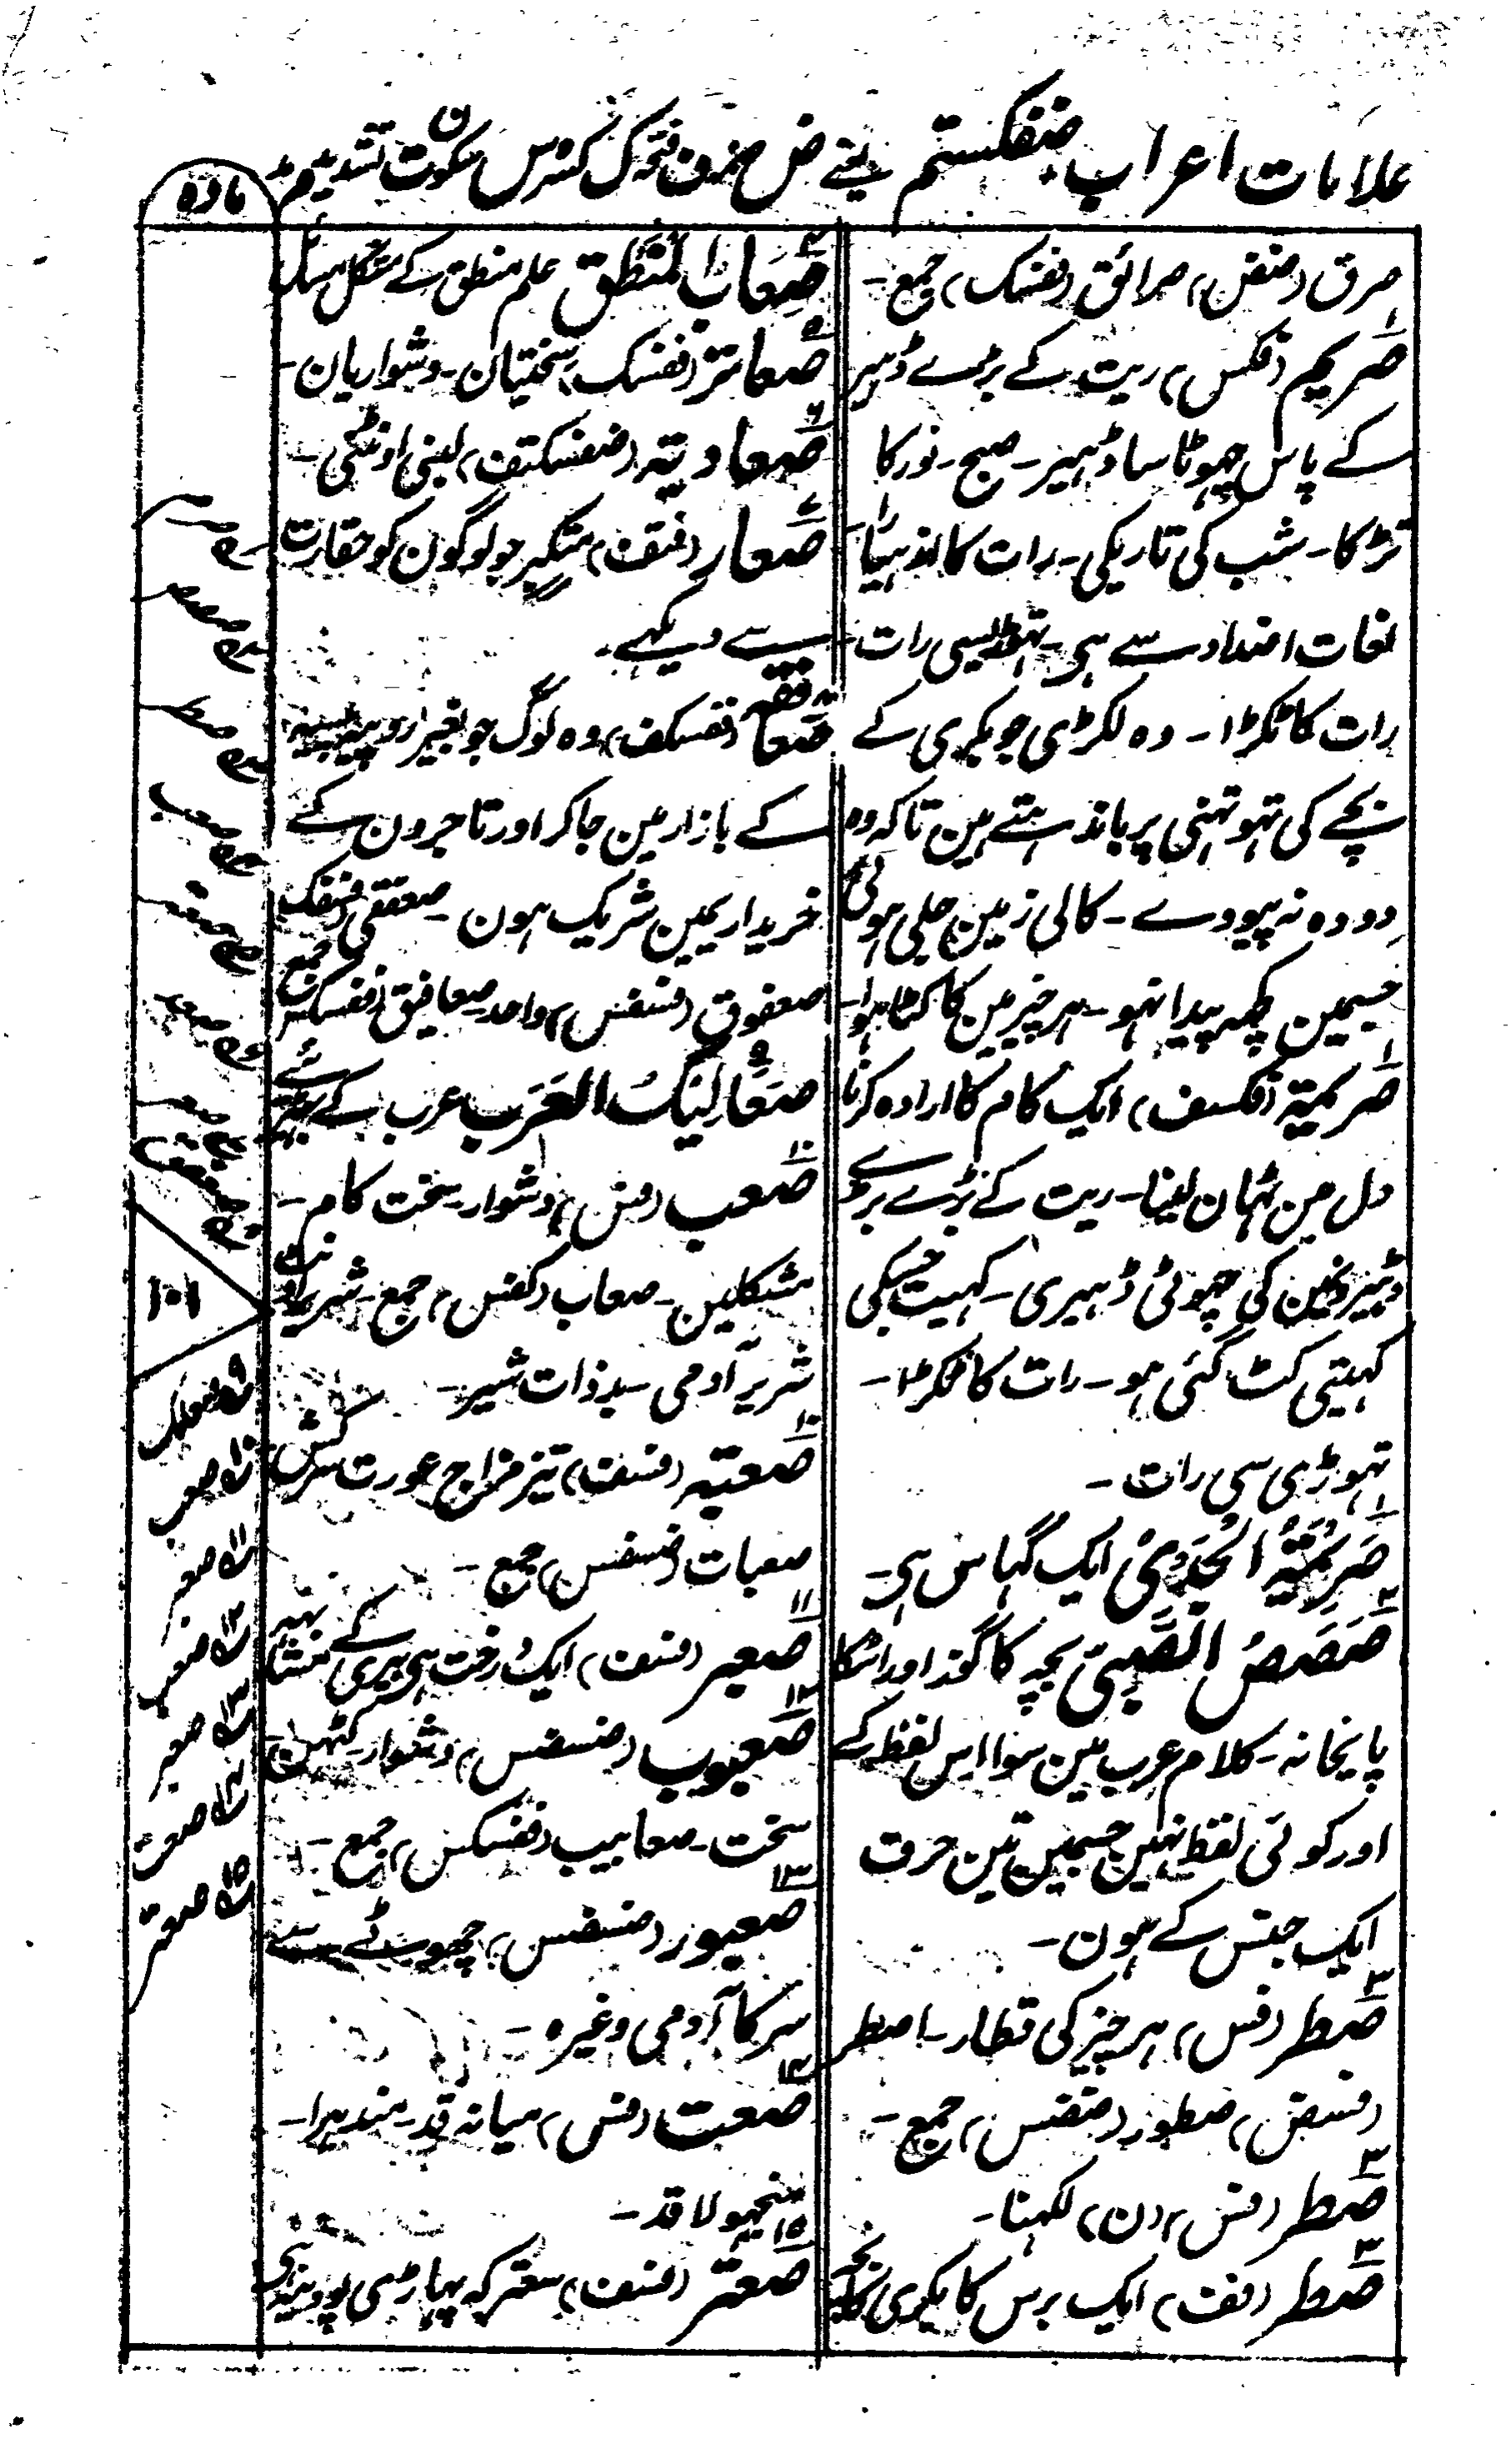 علامات اعراب ضفکستم یعنے ض ضمہ ف فتحہ ک کسرہ س سکون ت تشدید م مد
مادہ
صرق (ضفن) صرائق (ففسک) جمع۔
صَریم (فکس) ریت کے بڑے ڈہیر
کے پاس چہوٹا سا ڈہیر۔ صبح۔ نور کا
تڑکا۔ شب کی تاریکی۔ رات کا اندہیرا۔
لغات اضداد سے ہی۔ تہوڑیسی رات۔
رات کا ٹکڑا۔ وہ لکڑی جو بکری کے
بچے کی تہوتہنی پر باندہتے ہین تاکہ وہ
دودہ نہ پیووے۔ کالی زمین جلی ہوئی
جسمین کچہہ پیدا نہو۔ ہر چیز مین کا کٹا ہوا۔
صَریمۃ (فکسف) ایک کام کا ارادہ کرنا
دل مین ٹہان لینا۔ ریت کے بڑے بڑے
ڈہیرونمین کی چہوٹی ڈہیری۔ کہیت جسکی
کہیتی کٹ گئی ہو۔ رات کا ٹکڑا۔
تہوڑی سی رات۔
صَرِیْمَۃُ الْجَدْیِ ایک گہاس ہی۔
صَصَصُ الصَّبِیِّ بچہ کا گند اور اسکا
پایخانہ۔ کلام عرب مین سوا اس لفظ کے
اور کوئی لفظ نہین جسمین تین حرف
ایک جنس کے ہون۔
صَطر (فس) ہر چیز کی قطار۔ اصطر
(فسض) صطور (ضضس) جمع۔
صَطر (فس) (ن) لکہنا۔
صَطر (فف) ایک برس کا بکری کا بچہ
صِعَابُ الْمَنْطِق علم منطق کے مشکل مسائل
صَعائر (ففسک) سختیان۔ دشواریان۔
صَعادیۃ (ضفسکتف) لنبی اونٹنی۔
صَعار (فتف) متکبر جو لوگون کو حقارت
سے دیکہے۔
صَعافقہ (ففسکف) وہ لوگ جو بغیر روپیہ پیسہ
کے بازار مین جا کر اور تاجرون کے
خریداریمین شریک ہون۔ صعفقی (فسفک)
صعفوق (فسضس) واحد۔ صعافیق (ففسکس) جمع
صَعَالِیْکُ الْعَرَب عرب کے
صَعب (فس) دشوار۔ سخت کام۔
مشکلین۔ صعاب (کفس) جمع۔ شریر اونٹ
شریر آدمی۔ بد ذات شیر۔
صَعبۃ (فسف) تیز مزاج عورت سرکش
صعبات (فسفس) جمع۔
صَعبر (فسف) ایک درخت ہی بیری کے
صَعبوب (ضسضس) دشوار۔ کٹہن۔
سخت۔ صعابیب (ففسکس) جمع۔
صَعبور (ضسضس) چہوٹے سے
سر کا آدمی وغیرہ۔
صَعت (فس) میانہ قد۔ مندیرا۔
منجہولا قد۔
صَعتر (فسف) سعتر کہ پہاڑی پودینہ ہی
۱۰۱
۹ صعلک
۱۰ صعب
۱۱ صعبر
۱۲ صعب
۱۳ صعبر
۱۴ صعت
۱۵ صعتر